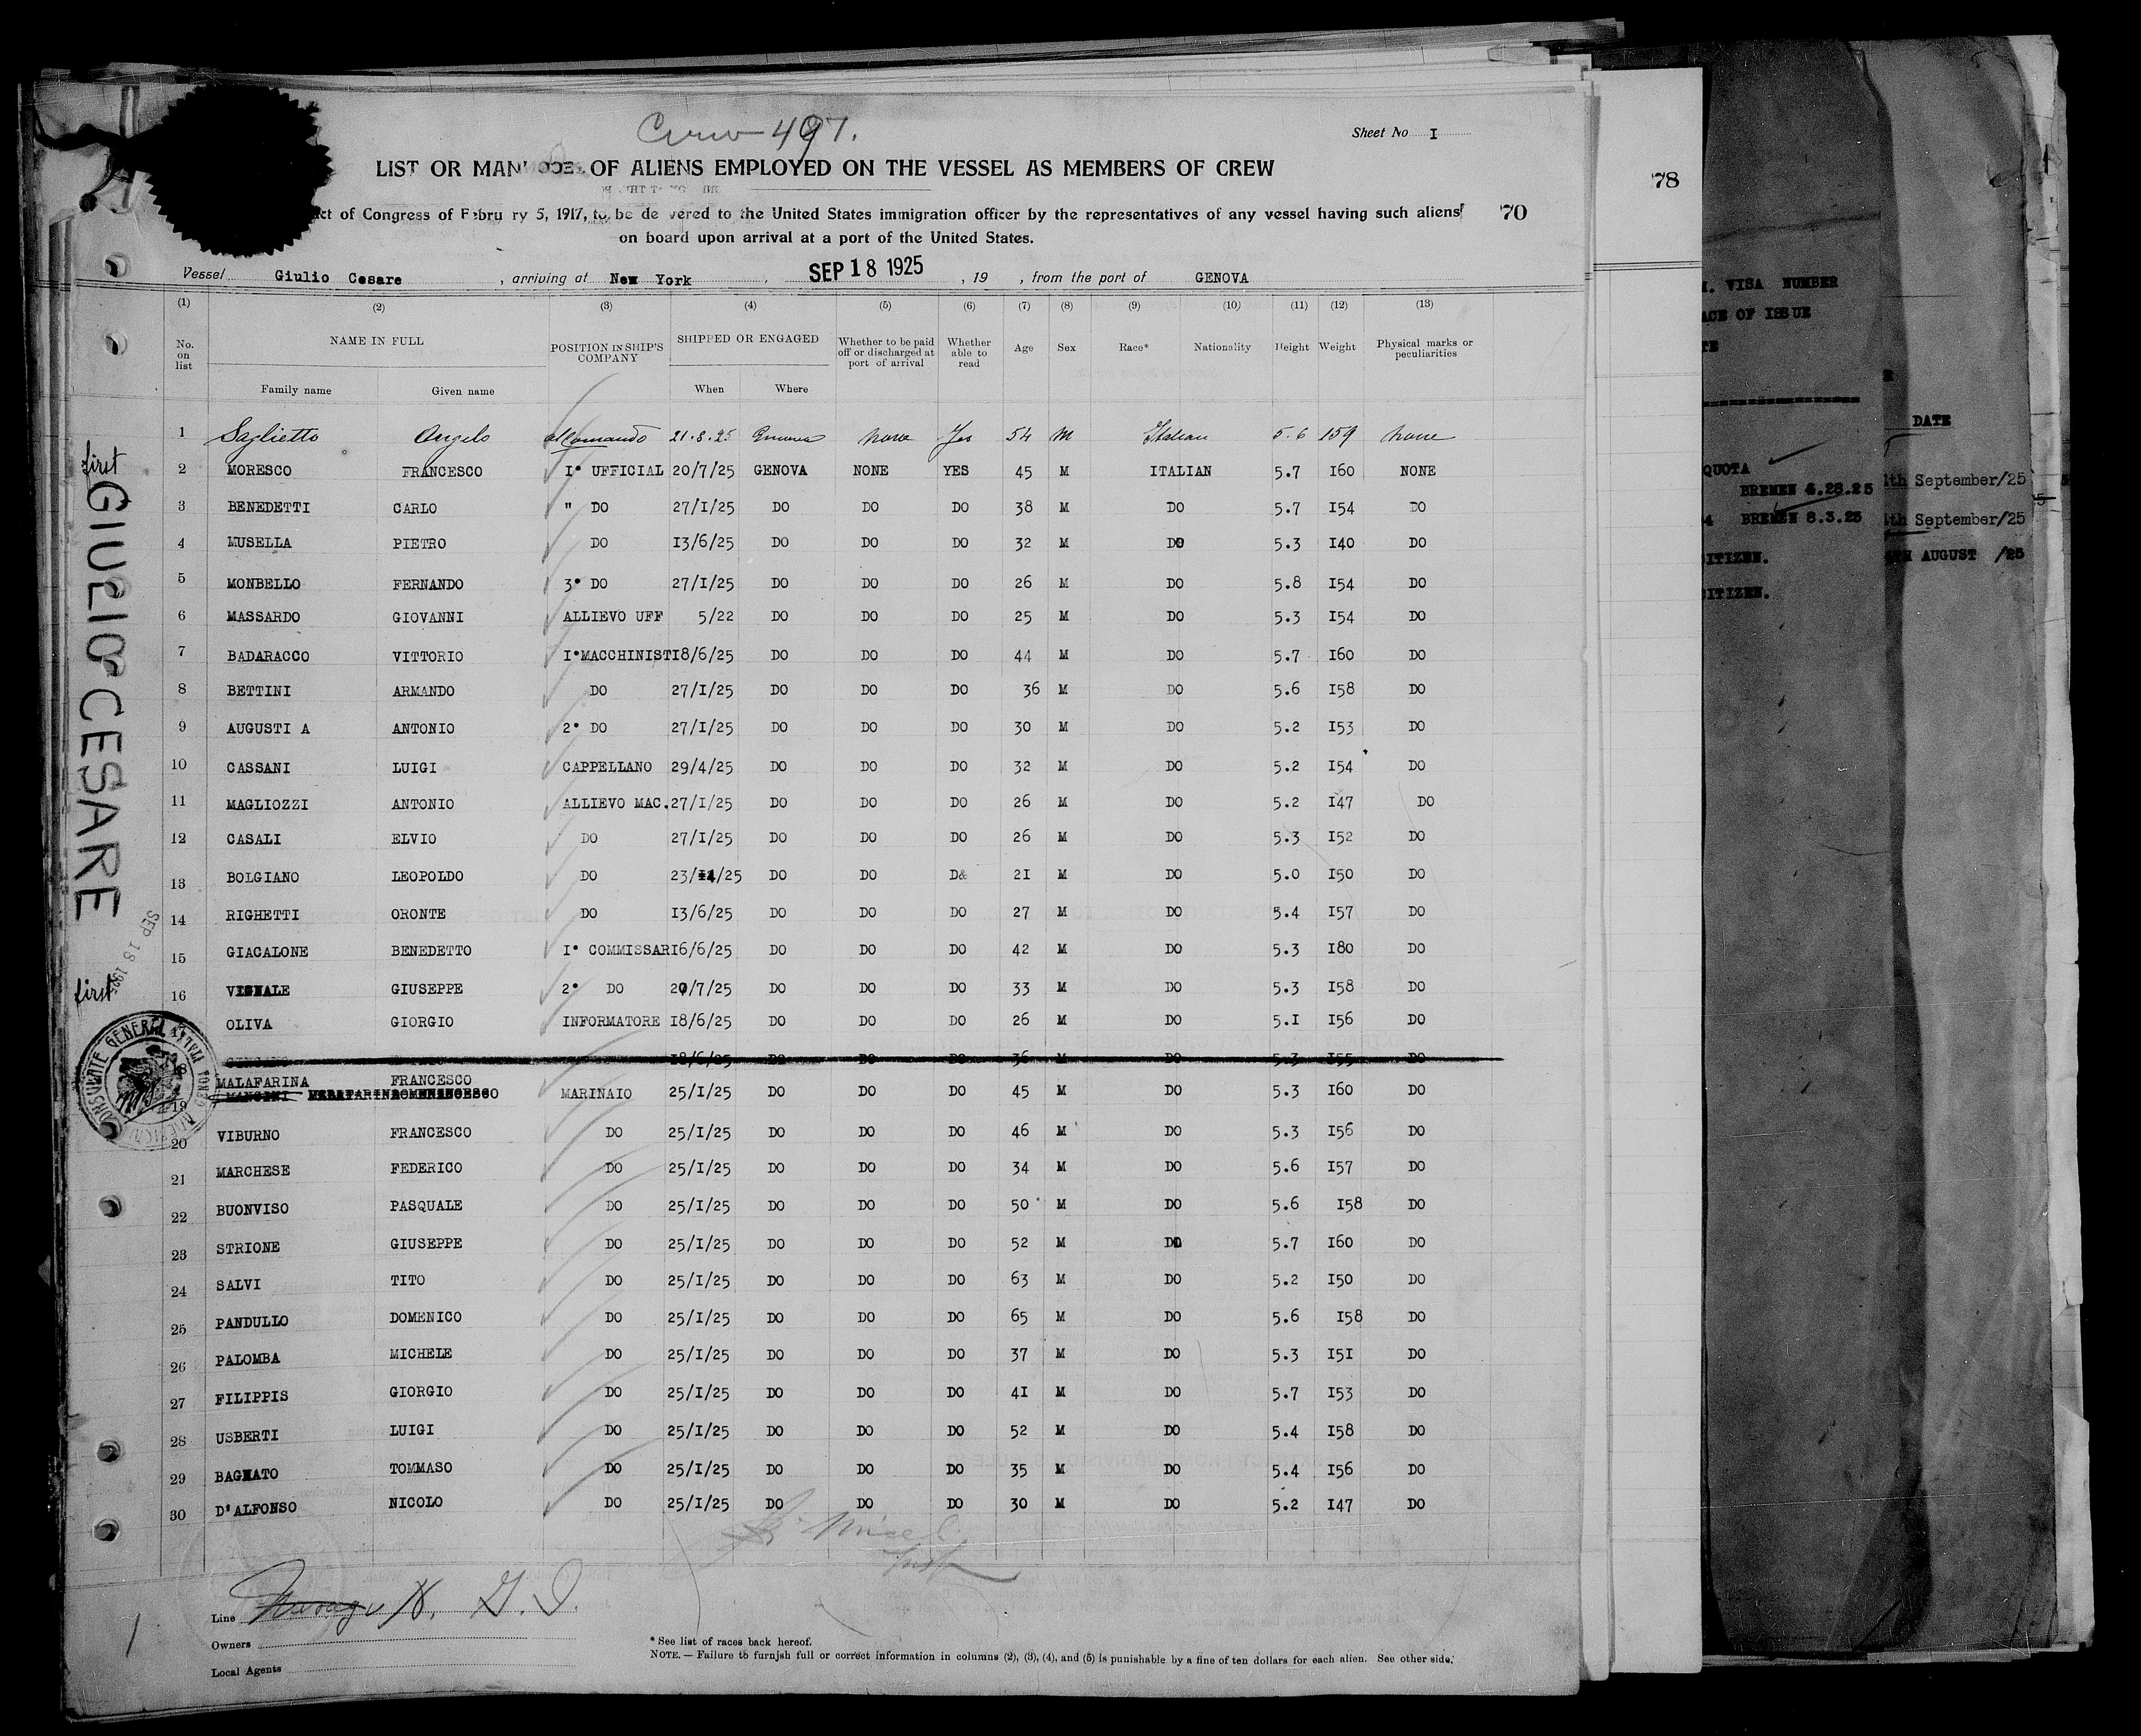 Crew 497.
Sheet No I
LIST OR MAN OF ALIENS EMPLOYED ON THE VESSEL AS MEMBERS OF CREW
Act of Congress of February 5, 1917, to be delivered to the United States immigration officer by the representatives of any vessel having such aliens
on board upon arrival at a port of the United States.
70
78
Vessel Giulio Cesare , arriving at New York , SEP 18 1925 , 19 , from the port of GENOVA
(1) (2) (3) (4) (5) (6) (7) (8) (9) (10) (11) (12) (13)
No. on list NAME IN FULL POSITION IN SHIP'S COMPANY SHIPPED OR ENGAGED Whether to be paid off or discharged at port of arrival Whether able to read Age Sex Race* Nationality Height Weight Physical marks or peculiarities
Family name Given name When Where
1 Saglietto Angelo al Comando 21.8.25 Genova None Yes 54 M Italian 5.6 159 None
2 MORESCO FRANCESCO I° UFFICIAL 20/7/25 GENOVA NONE YES 45 M ITALIAN 5.7 I60 NONE
3 BENEDETTI CARLO " DO 27/I/25 DO DO DO 38 M DO 5.7 I54 DO
4 MUSELLA PIETRO DO I3/6/25 DO DO DO 32 M DO 5.3 I40 DO
5 MONBELLO FERNANDO 3° DO 27/I/25 DO DO DO 26 M DO 5.8 I54 DO
6 MASSARDO GIOVANNI ALLIEVO UFF 5/22 DO DO DO 25 M DO 5.3 I54 DO
7 BADARACCO VITTORIO I°MACCHINISTI8/6/25 DO DO DO 44 M DO 5.7 I60 DO
8 BETTINI ARMANDO DO 27/I/25 DO DO DO 36 M DO 5.6 I58 DO
9 AUGUSTI A ANTONIO 2° DO 27/I/25 DO DO DO 30 M DO 5.2 I53 DO
10 CASSANI LUIGI CAPPELLANO 29/4/25 DO DO DO 32 M DO 5.2 I54 DO
11 MAGLIOZZI ANTONIO ALLIEVO MAC. 27/I/25 DO DO DO 26 M DO 5.2 I47 DO
12 CASALI ELVIO DO 27/I/25 DO DO DO 26 M DO 5.3 I52 DO
13 BOLGIANO LEOPOLDO DO 23/4/25 DO DO D& 2I M DO 5.0 I50 DO
14 RIGHETTI ORONTE DO I3/6/25 DO DO DO 27 M DO 5.4 I57 DO
15 GIACALONE BENEDETTO I° COMMISSARI6/6/25 DO DO DO 42 M DO 5.3 I80 DO
16 VIGNALE GIUSEPPE 2° DO 20/7/25 DO DO DO 33 M DO 5.3 I58 DO
17 OLIVA GIORGIO INFORMATORE I8/6/25 DO DO DO 26 M DO 5.I I56 DO
18 I8/6/25 DO DO DO 36 M DO 5.3 I55 DO
MALAFARINA FRANCESCO
19 MANGINI MARINAIO 25/I/25 DO DO DO 45 M DO 5.3 I60 DO
20 VIBURNO FRANCESCO DO 25/I/25 DO DO DO 46 M DO 5.3 I56 DO
21 MARCHESE FEDERICO DO 25/I/25 DO DO DO 34 M DO 5.6 I57 DO
22 BUONVISO PASQUALE DO 25/I/25 DO DO DO 50 M DO 5.6 I58 DO
23 STRIONE GIUSEPPE DO 25/I/25 DO DO DO 52 M DO 5.7 I60 DO
24 SALVI TITO DO 25/I/25 DO DO DO 63 M DO 5.2 I50 DO
25 PANDULLO DOMENICO DO 25/I/25 DO DO DO 65 M DO 5.6 I58 DO
26 PALOMBA MICHELE DO 25/I/25 DO DO DO 37 M DO 5.3 I5I DO
27 FILIPPIS GIORGIO DO 25/I/25 DO DO DO 4I M DO 5.7 I53 DO
28 USBERTI LUIGI DO 25/I/25 DO DO DO 52 M DO 5.4 I58 DO
29 BAGNATO TOMMASO DO 25/I/25 DO DO DO 35 M DO 5.4 I56 DO
30 D'ALFONSO NICOLO DO 25/I/25 DO DO DO 30 M DO 5.2 I47 DO
Line G. I.
Owners
Local Agents
1
* See list of races back hereof.
NOTE. — Failure to furnish full or correct information in columns (2), (3), (4), and (5) is punishable by a fine of ten dollars for each alien. See other side.
first
GIULIO CESARE
SEP 18 1925
first
VISA NUMBER
OF ISSUE
QUOTA
BREMEN 4.28.25
BREMEN 8.3.25
CITIZEN.
CITIZEN.
DATE
th September/25
th September/25
TH AUGUST /25